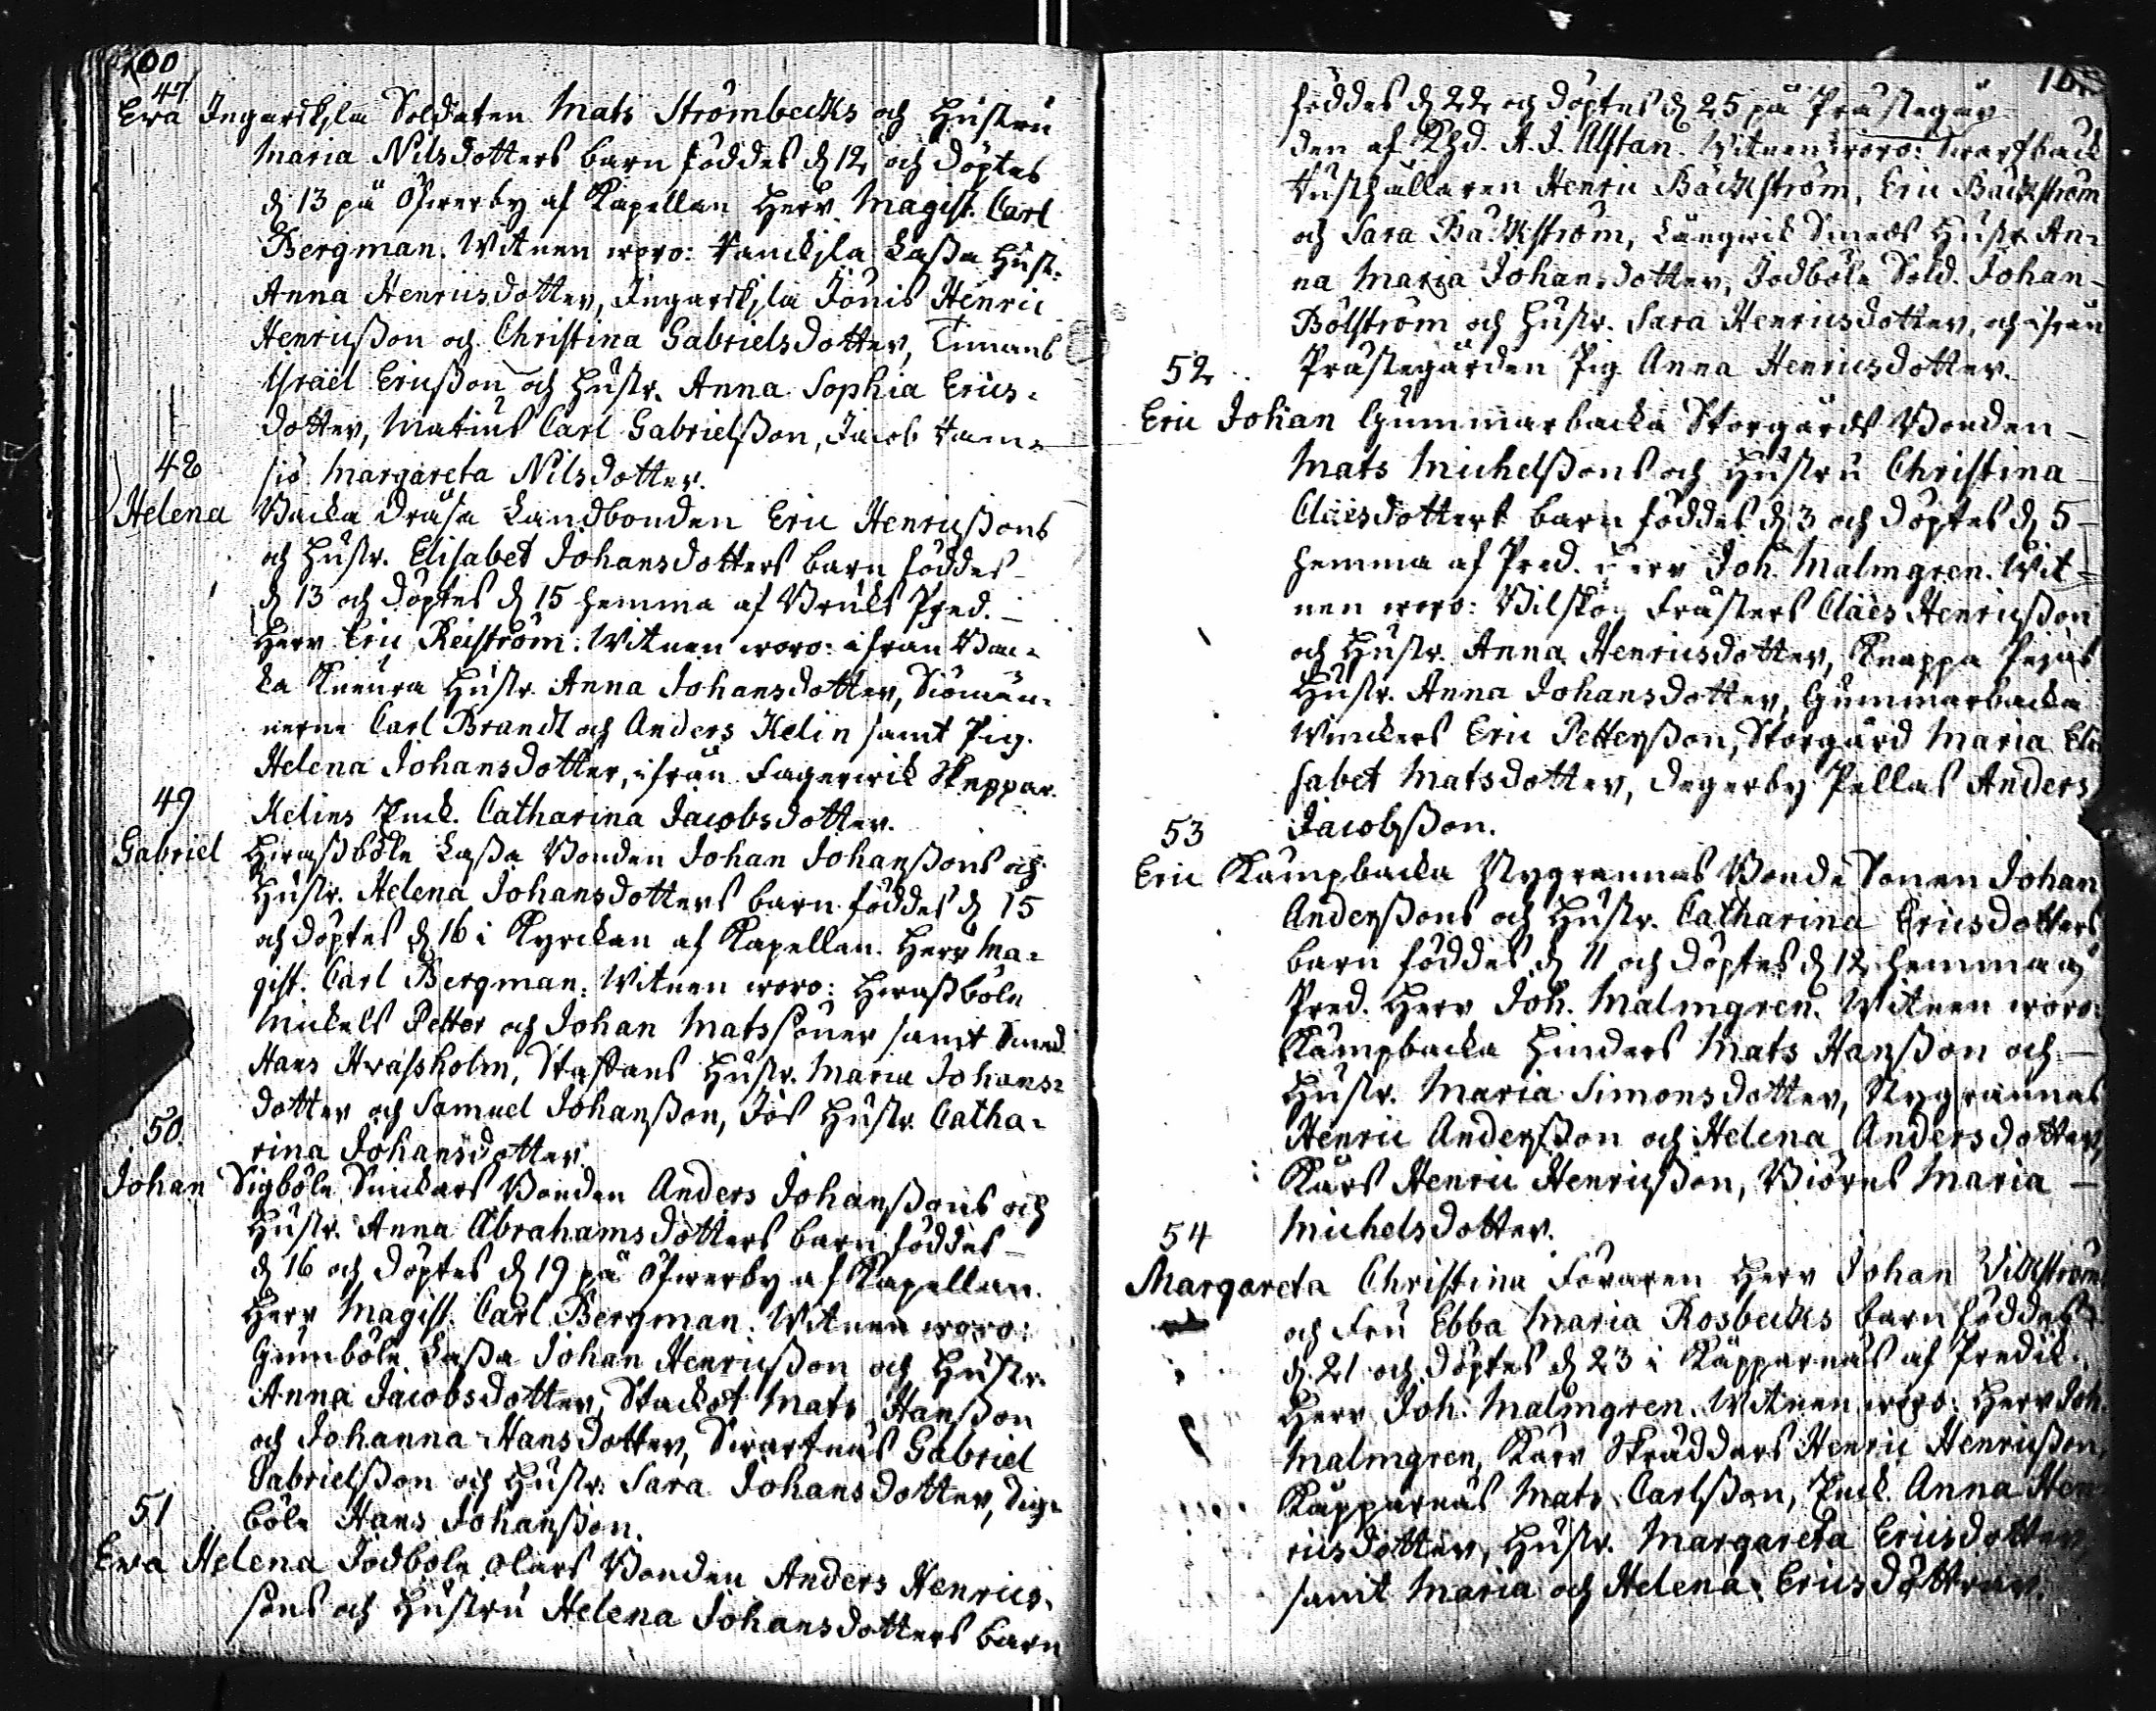 100
47
Ewa Ingarskila Soldaten Mats Strömbecks och Hustru
Maria Nilsdotters barn föddes d 12 och döptes
d 13 på Öfwerby af Kapellan Herr Magist. Carl
Bergman. Witnen woro: Laßa Hust.
Anna Henricsdotter, Ingarskila Jönis Henric
Henricßon och Christina Gabrielsdotter, Timans
Israël Ericßon och Hustr. Anna Sophia Erics-
dotter, Carl Gabrielßon, Jacob
Margareta Nilsdotter.
48
Helena Backa Landbonden Eric Henricßons
och Hustr. Elisabet Johansdotters barn föddes
d 13 och döptes d 15 hemma af Bruks Pred.
Herr Eric Reiström. Witnen woro: ifrån Bac-
ka Hustr. Anna Johansdotter, Siömän-
nerne Carl Brandt och Anders Kelin samt Pig.
Helena Johansdotter, ifrån Fagerwik Skeppar
Kelins Enck. Catharina Jacobsdotter.
49
Gabriel Laßa Bonden Johan Johanßons och
Hustr. Helena Johansdotters barn föddes d 15
och döptes d 16 i Kyrckan af Kapellan Herr Ma-
gist. Carl Bergman. Witnen woro:
Mickels Petter och Johan Matssöner samt Smed
Hans Hraßholm, Staffans Hustr. Maria Johans-
dotter och Samuel Johanßon, Jös Hustr. Catha-
rina Johansdotter.
50
Johan Sigböle Bonden Anders Johanßons och
Hustr. Anna Abrahamsdotters barn föddes
d 16 och döptes d 19 på Öfwerby af Kapellan
Herr Magist. Carl Bergman. Witnen woro:
Gunböle Laßa Johan Henricßon och Hustr.
Anna Jacobsdotter, Mats Hanßon
och Johanna Hansdotter, Swartnäs Gabriel
Gabrielßon och Hustr. Sara Johansdotter, Sig-
böle Hans Johanßon.
51
Ewa Helena Jodböle Olars Bonden Anders Henrics-
sons och Hustru Helena Johansdotters barn
föddes d 22 och döptes d 25 på Prästegår-
den af A. J. Alftan. Witnen woro: Swartback
Hushållaren Henric Bäckström, Eric Bäckström
och Sara Bäckström, Långwik Smeds Hustr. An-
na Maria Johansdotter, Jodböle Sold. Johan
Bölström och Hustr. Sara Henricsdotter, och ifrån
Prästegården Pig. Anna Henricsdotter.
52
Eric Johan Gummarbacka Storgårds Bonden
Mats Michelßons och Hustru Christina
Claësdotters barn föddes d 3 och döptes d 5
hemma af Pred. Herr Joh. Malmgren. Wit-
nen woro: Bilskog Frästers Claës Henricßon
och Hustr. Anna Henricsdotter, Knappa
Hustr. Anna Johansdotter, Gummarbacka
Winckers Eric Petterßon, Storgård Maria Eli-
sabet Matsdotter, Degerby Pellas Anders
Jacobßon.
53
Eric Kämpbacka Nygrannas Bonde Sonen Johan
Anderßons och Hustr. Catharina Ericsdotters
barn föddes d 11 och döptes d 12 hemma af
Pred. Herr Joh. Malmgren. Witnen woro:
Kämpbacka Hinders Mats Hanßon och
Hustr. Maria Simonsdotter, Nygrannas
Henric Anderßon och Helena Andersdotter,
Kärs Henric Henricßon, Biörns Maria
Michelsdotter.
54
Margareta Christina Föraren Herr Johan Vikström
och Fru Ebba Maria Rosbecks barn föddes
d. 21 och döptes d 23 i Käpparnäs af Predik.
Herr Joh. Malmgren. Witnen woro: Herr Joh.
Malmgren, Kärr Skräddars Henric Henricßon,
Käpparnäs Mats Carlßon, Enck. Anna Hen-
ricsdotter, Hustr. Margareta Ericsdotter,
samt Maria och Helena Ericsdöttrar.